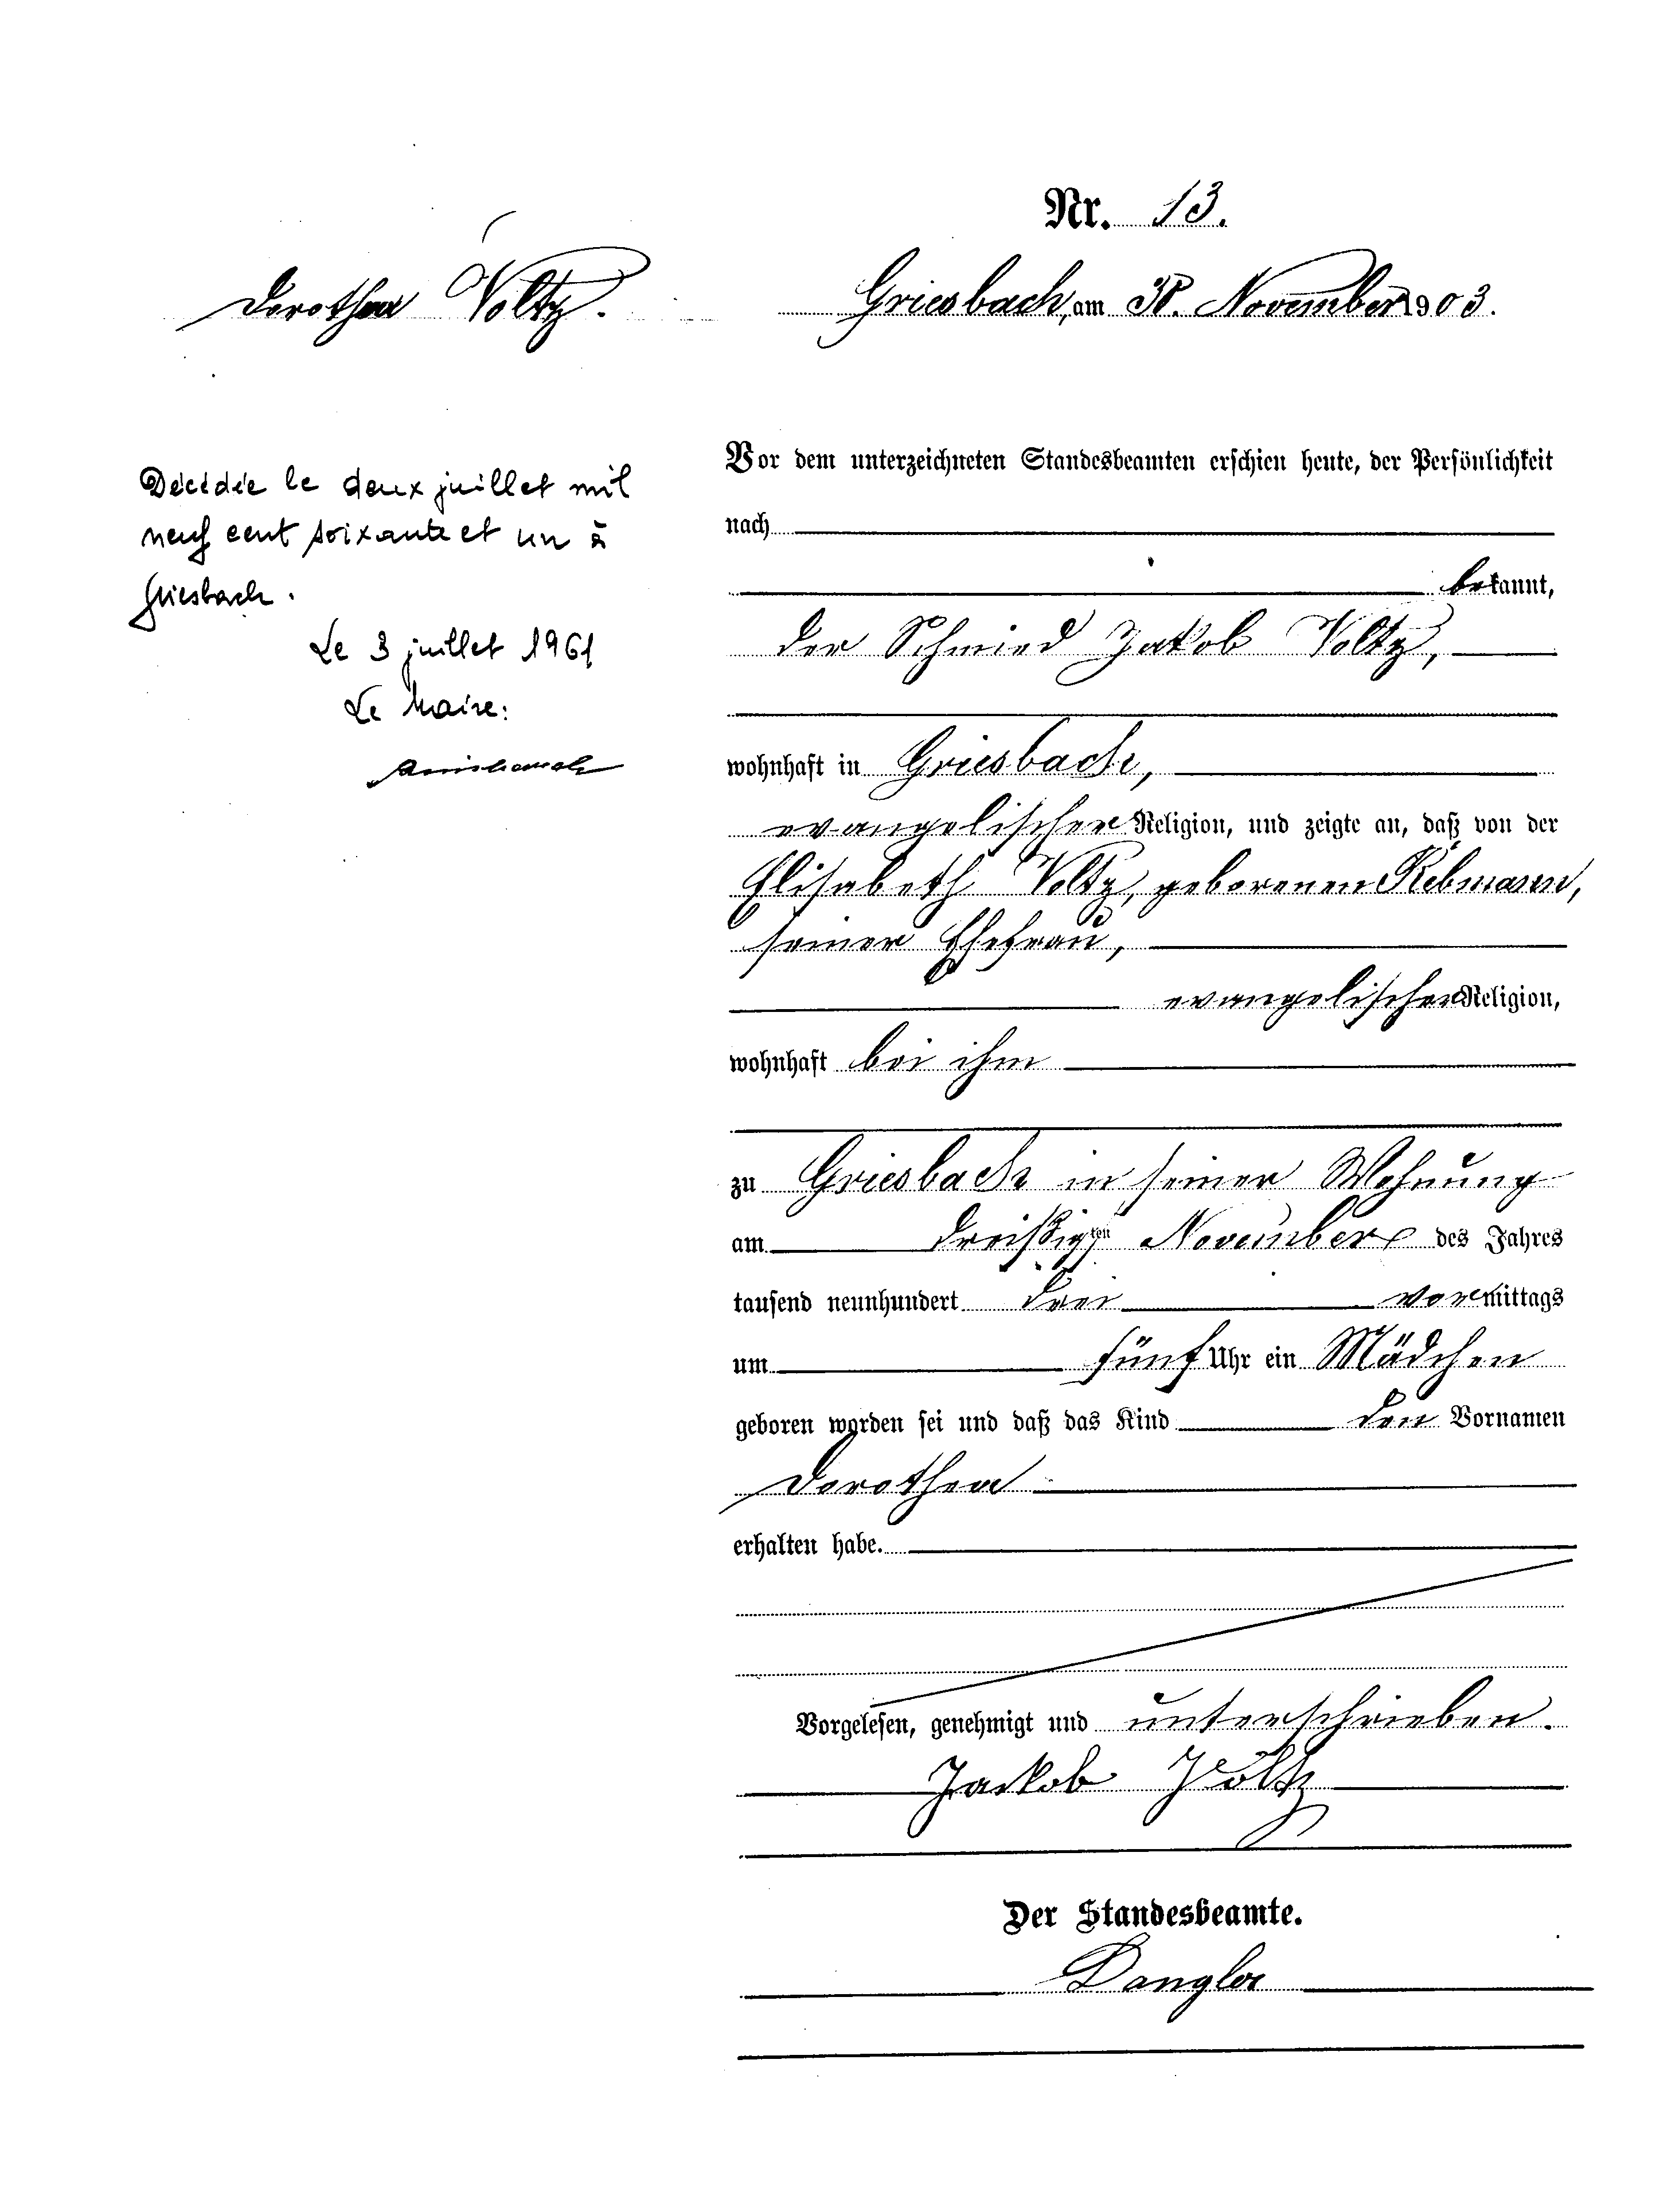 Nr. 13.
Dorothea Voltz.
Griesbach, am 30. November 1903.
Décédée le deux juillet mil
neuf cent soixante et un à
Griesbach.
Le 3 juillet 1961
Le Maire:
Vor dem unterzeichneten Standesbeamten erschien heute, der Persönlichkeit
nach
bekannt,
der Schmied Jakob Voltz,
wohnhaft in Griesbach,
evangelischer Religion, und zeigte an, daß von der
Elisabeth Voltz, geborenen Rebmann,
seiner Ehefrau,
evangelischer Religion,
wohnhaft bei ihm
zu Griesbach in seiner Wohnung
am dreißigsten November des Jahres
tausend neunhundert drei vormittags
um fünf Uhr ein Mädchen
geboren worden sei und daß das Kind den Vornamen
Dorothea
erhalten habe.
Vorgelesen, genehmigt und unterschrieben.
Jackob Voltz
Der Standesbeamte.
Dangler